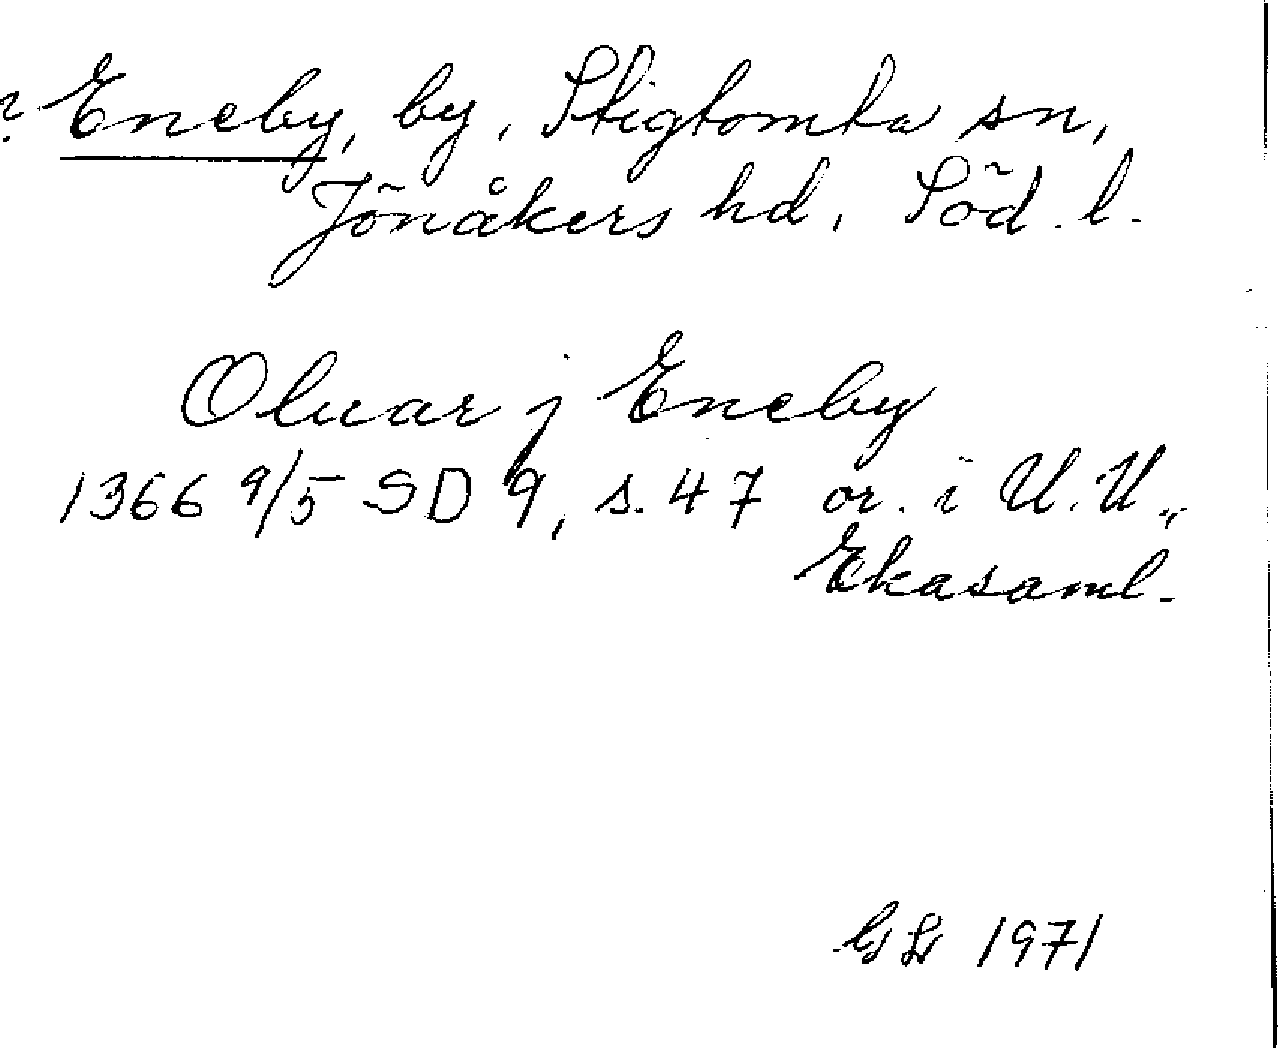 ? Eneby, by, Stigtomta sn,
Jönåkers hd, Söd. l.
Oluar j Eneby
1366 9/5 SD 9, s. 47 or. i U.U.,
Ekasaml.
GL 1971